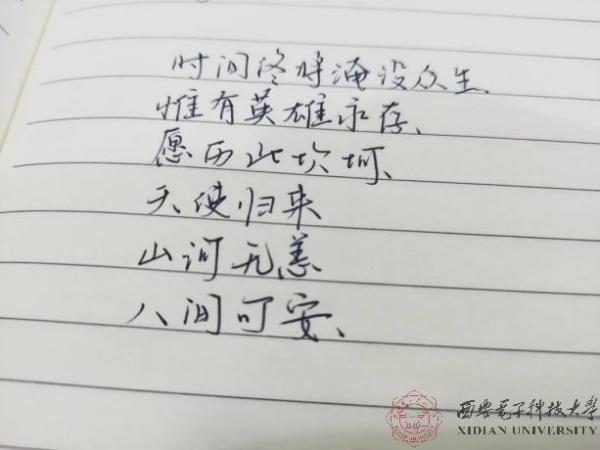 时间终将淹没众生、
惟有英雄永存、
愿历此坎坷、
天使归来
山河无恙
人间可安、
西安电子科技大学
XIDIAN UNIVERSITY